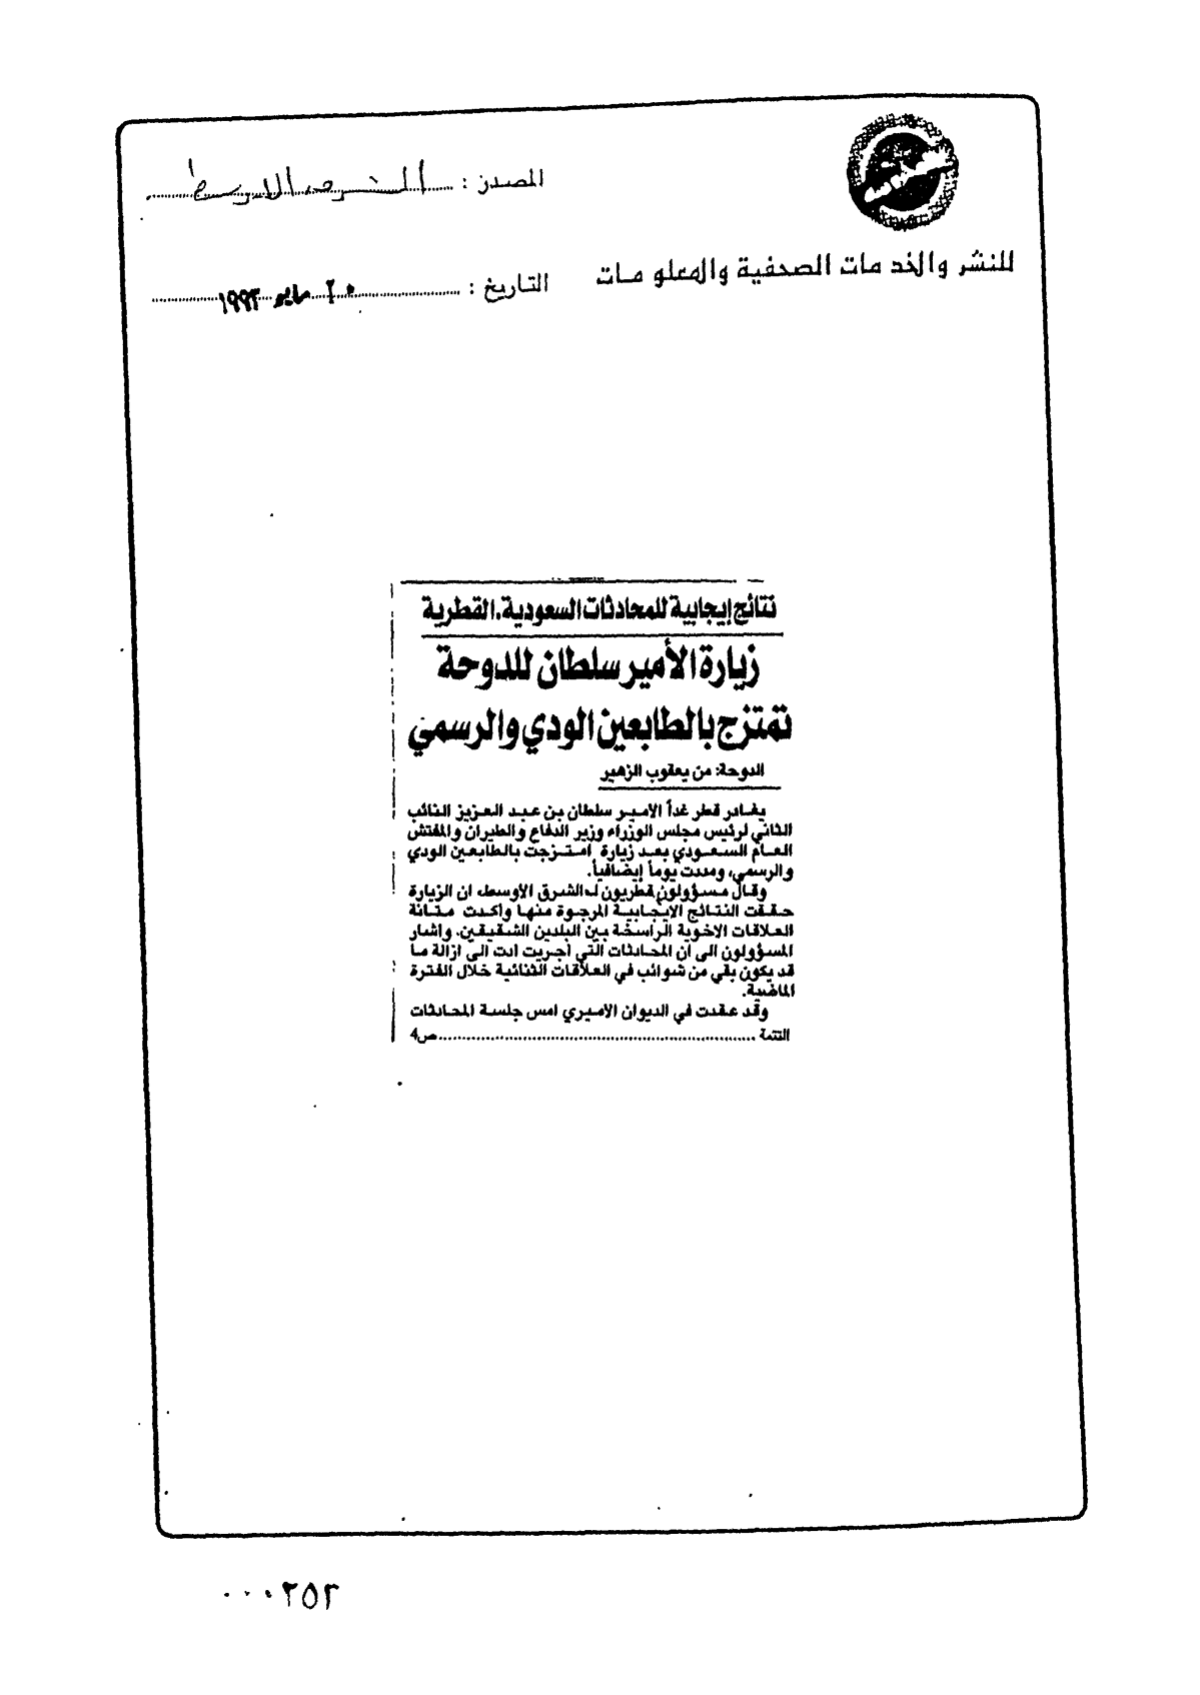 المصدر : الشرق الاوسط
للنشر والخدمات الصحفية والمعلومات
التاريخ : ٢٠ مايو ١٩٩٣
نتائج إيجابية للمحادثات السعودية.القطرية
زيارة الأمير سلطان للدوحة
تمتزج بالطابعين الودي والرسمي
الدوحة: من يعقوب الزهير
يغادر قطر غداً الامير سلطان بن عبد العزيز النائب
الثاني لرئيس مجلس الوزراء وزير الدفاع والطيران والمفتش
العام السعودي بعد زيارة امتزجت بالطابعين الودي
والرسمي، ومددت يوماً إيضافياً.
وقال مسؤولون قطريون لـ«الشرق الأوسط» ان الزيارة
حققت النتائج الايجابية المرجوة منها وأكدت متانة
العلاقات الاخوية الراسخة بين البلدين الشقيقين. واشار
المسؤولون الى ان المحادثات التي أجريت ادت الى ازالة ما
قد يكون بقي من شوائب في العلاقات الثنائية خلال الفترة
الماضية.
وقد عقدت في الديوان الاميري امس جلسة المحادثات
التتمة ........ ص4
٠٠٠٢٥٢